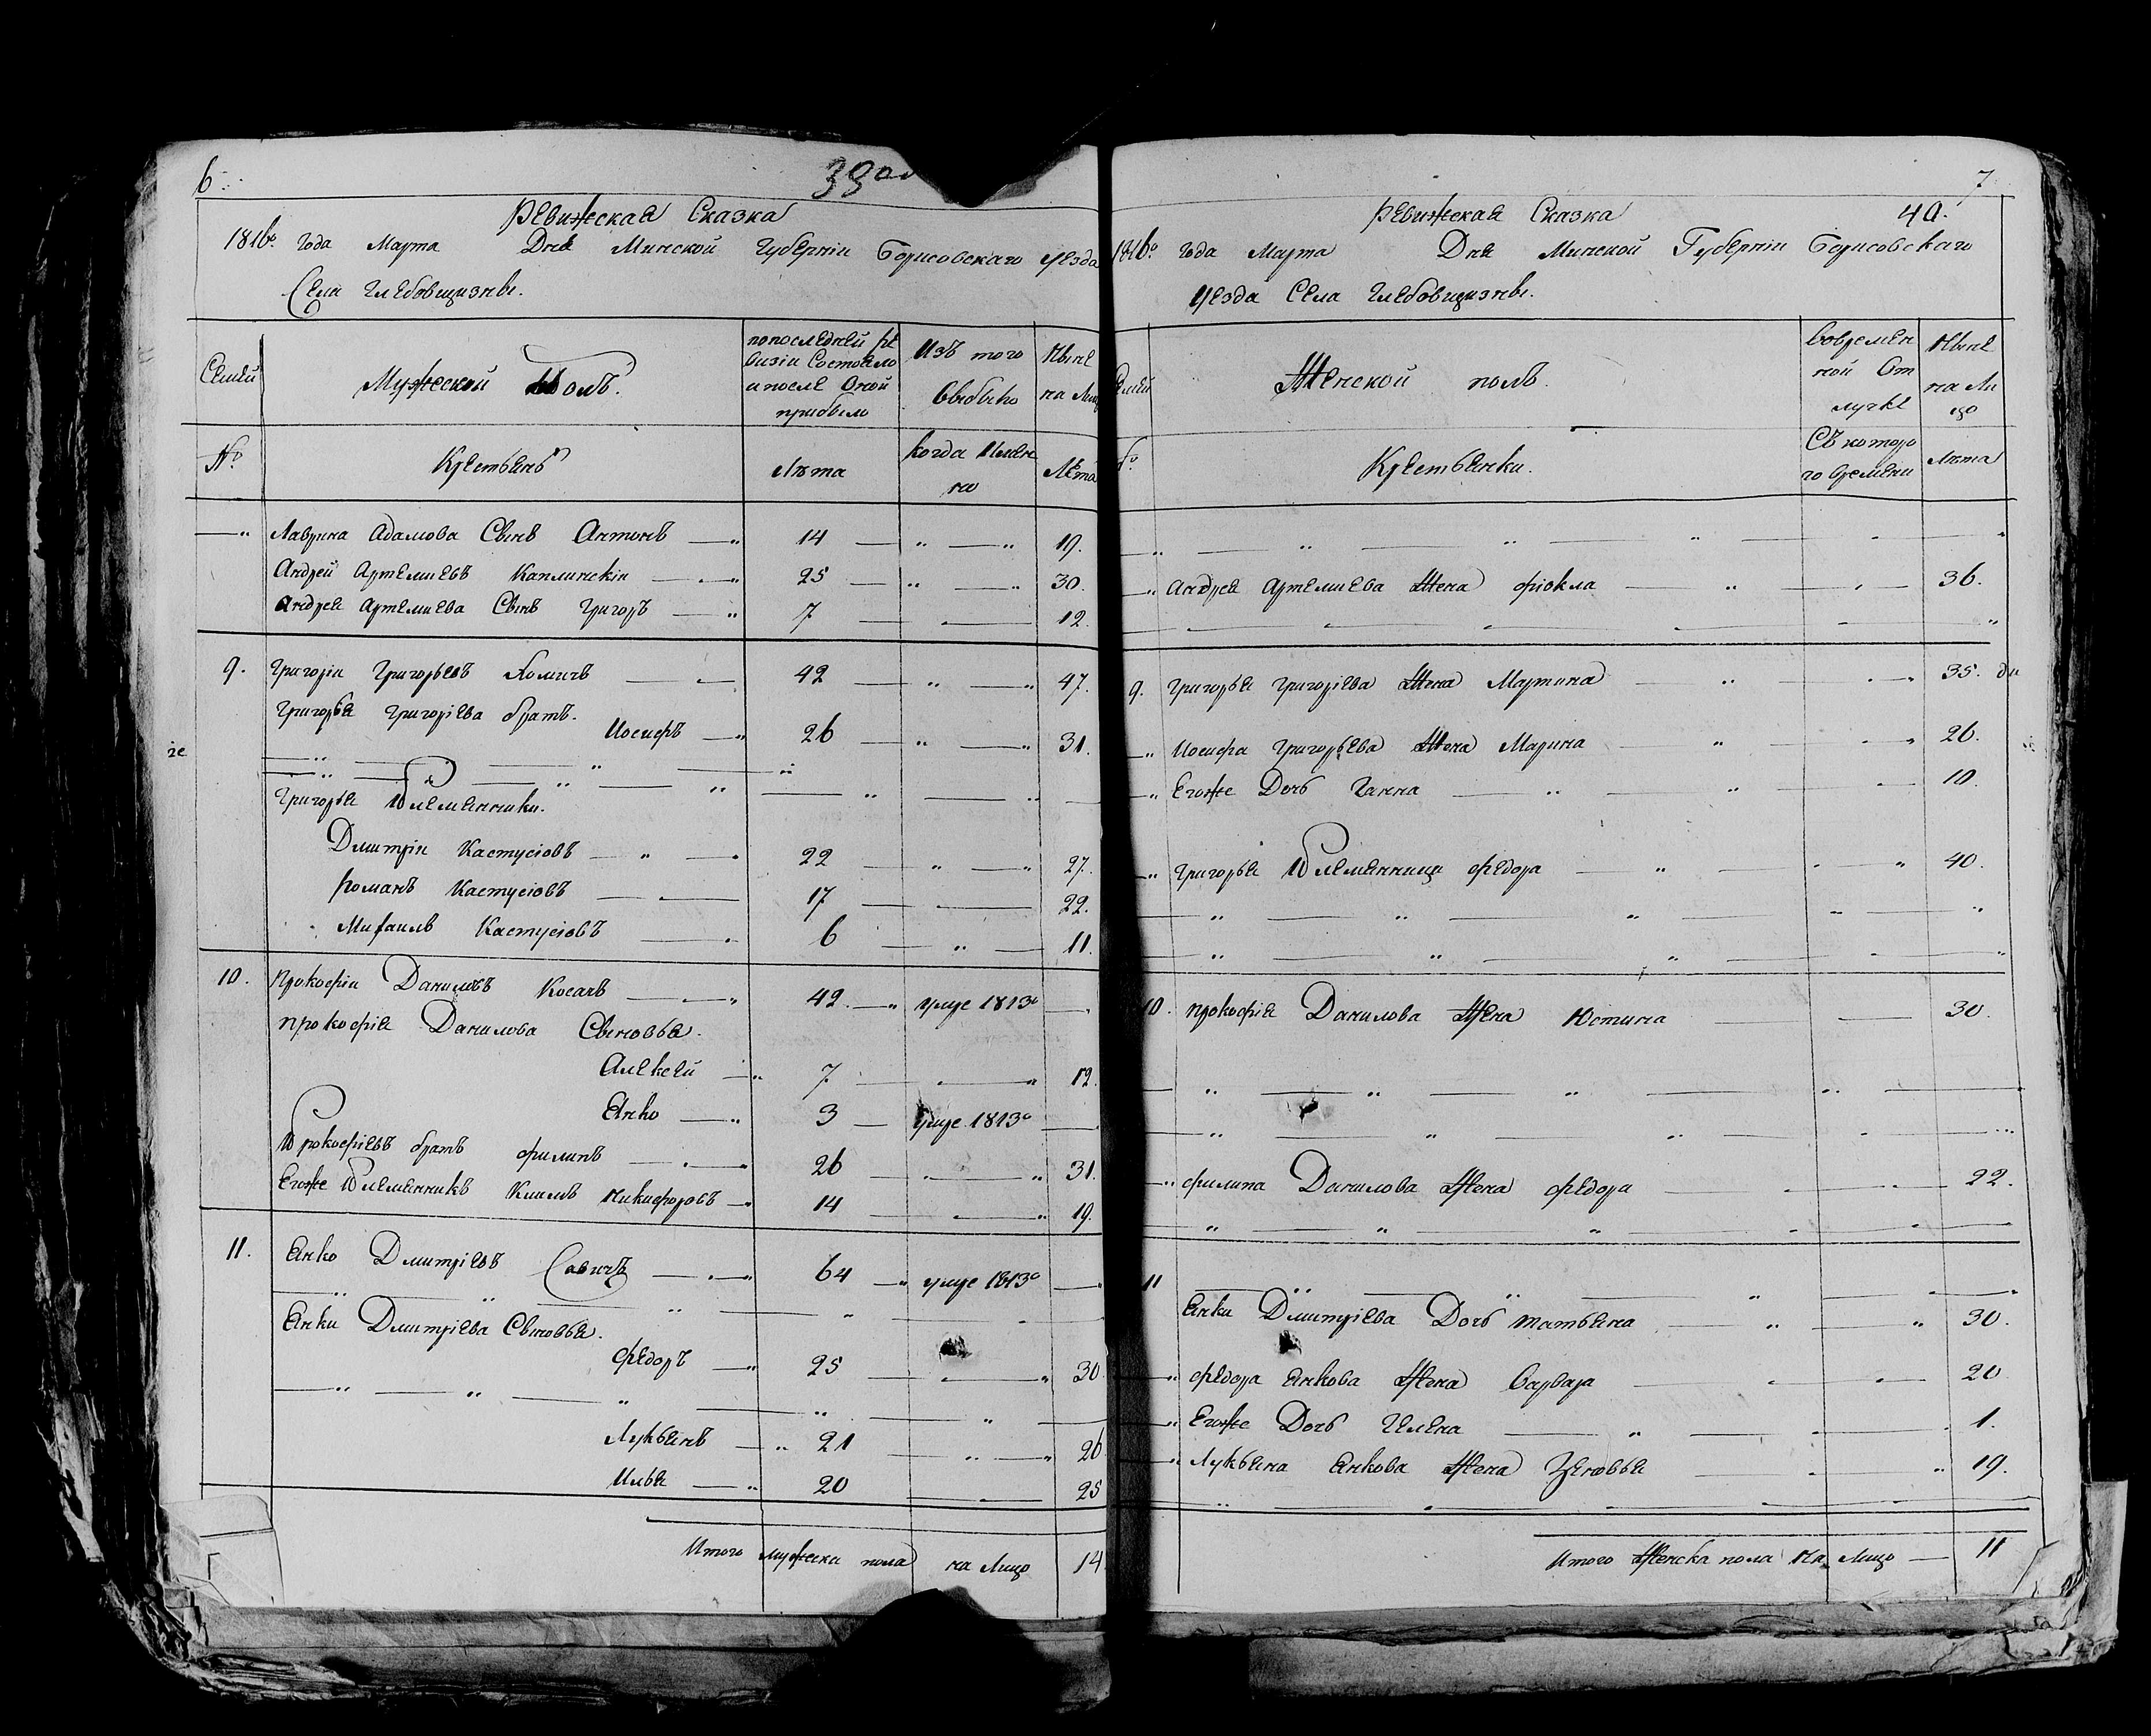 6
39об
Ревижская Сказка
1816го года Марта Дня Минской Губернии Борисовскаго уезда
Села Глебовщизны.
Семьи
Мужеской Полъ.
попоследней ре
визіи Состояло
и после Оной
прибыло
Изъ того
выбыло
Ныне
на Лицо
№
Крестьянъ
Лѣта
когда Имен
но
Лѣта
Лаврина Адамова Сынъ Антонъ 14 19.
Андрей Артемиевъ Каплинскіи 25 30.
Андрея Артемиева Сынъ Григоръ 7 12.
9. Григоріи Григорьевъ Хомичъ 42 47.
Григорья Григоріева братъ.
Иосифъ 26 31.
Григорья Племянники.
Дмитріи Кастусіовъ 22 27.
Романъ Кастусіовъ 17 22.
Михаилъ Кастусіовъ 6 11.
10. Прокофіи Даниловъ Косачъ 42. умре 1813го
Прокофія Данилова Сыновья.
Алексей 7 12.
Янко 3 умре 1813го
Прокофіевъ братъ Филипъ 26 31.
Егоже Племянникъ Климъ Никифоровъ 14 19.
11. Янко Дмитріевъ Савичъ 64 умре 1813го
Янки Дмитріева Сыновья.
Федоръ 25 30
Лукьянъ 21 26
Илья 20 25
Итого мужеска пола на Лицо 14
7
40.
Ревижская Сказка
1816го года Марта Дня Минской Губерніи Борисовскаго
Уезда Села Глебовщизны.
Семьи
Женской полъ.
Вовремян
ной От
лучке
Ныне
на Ли
цо
№
Крестьянки.
Съ которо
го времени
Лѣта
Андрея Артемиева Жена Фіокла 36.
9. Григорья Григоріева Жена Мартина 35.
Иосифа Григорьева Жена Марина 26.
Егоже Дочь Ганна 10.
Григорья Племянница Федора 40.
10. Прокофія Данилова Жена Юстина 30.
Филипа Данилова Жена Федора 22.
11
Янки Дмитріева Дочь Татьяна 30.
Федора Янкова Жена Варвара 20
Егоже Дочь Гелена 1.
Лукьяна Янкова Жена Зеновья 19.
Итого Женска пола На Лицо 11